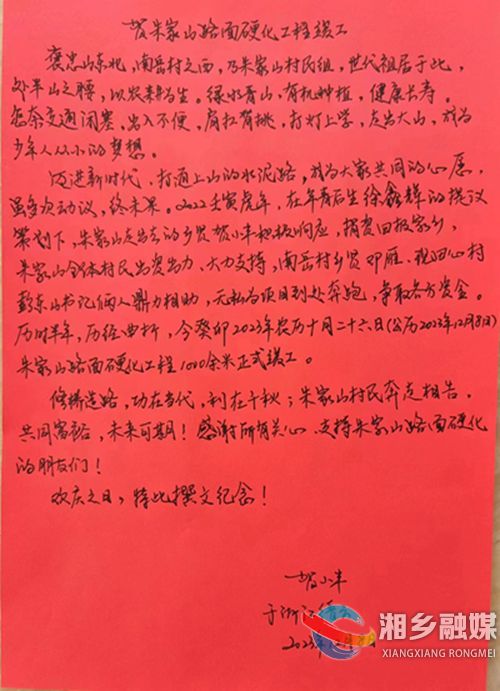 贺朱家山路面硬化工程竣工
褒忠山东北，南岳村之西，乃朱家山村民组，世代祖居于此，
处半山之腰，以农耕为生。绿水青山，有机种植，健康长寿。
怎奈交通闭塞，出入不便，肩扛背挑，打灯上学，走出大山，成为
少年人从小的梦想。
迈进新时代，打通上山的水泥路，成为大家共同的心愿，
虽多次动议，终未果。2022壬寅虎年，在年青后生徐鑫辉的提议
策划下，朱家山走出去的乡贤贺小丰积极响应，捐资回报家乡，
朱家山全体村民出资出力、大力支持，南岳村乡贤邓雁、现田心村
彭东山书记俩人鼎力相助，无私为项目到处奔跑，争取各方资金。
历时半年，历经曲折，今癸卯2023年农历十月二十六日(公历2023年12月8日)
朱家山路面硬化工程1000余米正式竣工。
修桥造路，功在当代，利在千秋；朱家山村民奔走相告，
共同富裕，未来可期！感谢所有关心、支持朱家山路面硬化
的朋友们！
欢庆之日，特此撰文纪念！
贺小丰
于浙江
2023年12月8日
湘乡融媒
XIANGXIANG RONGMEI